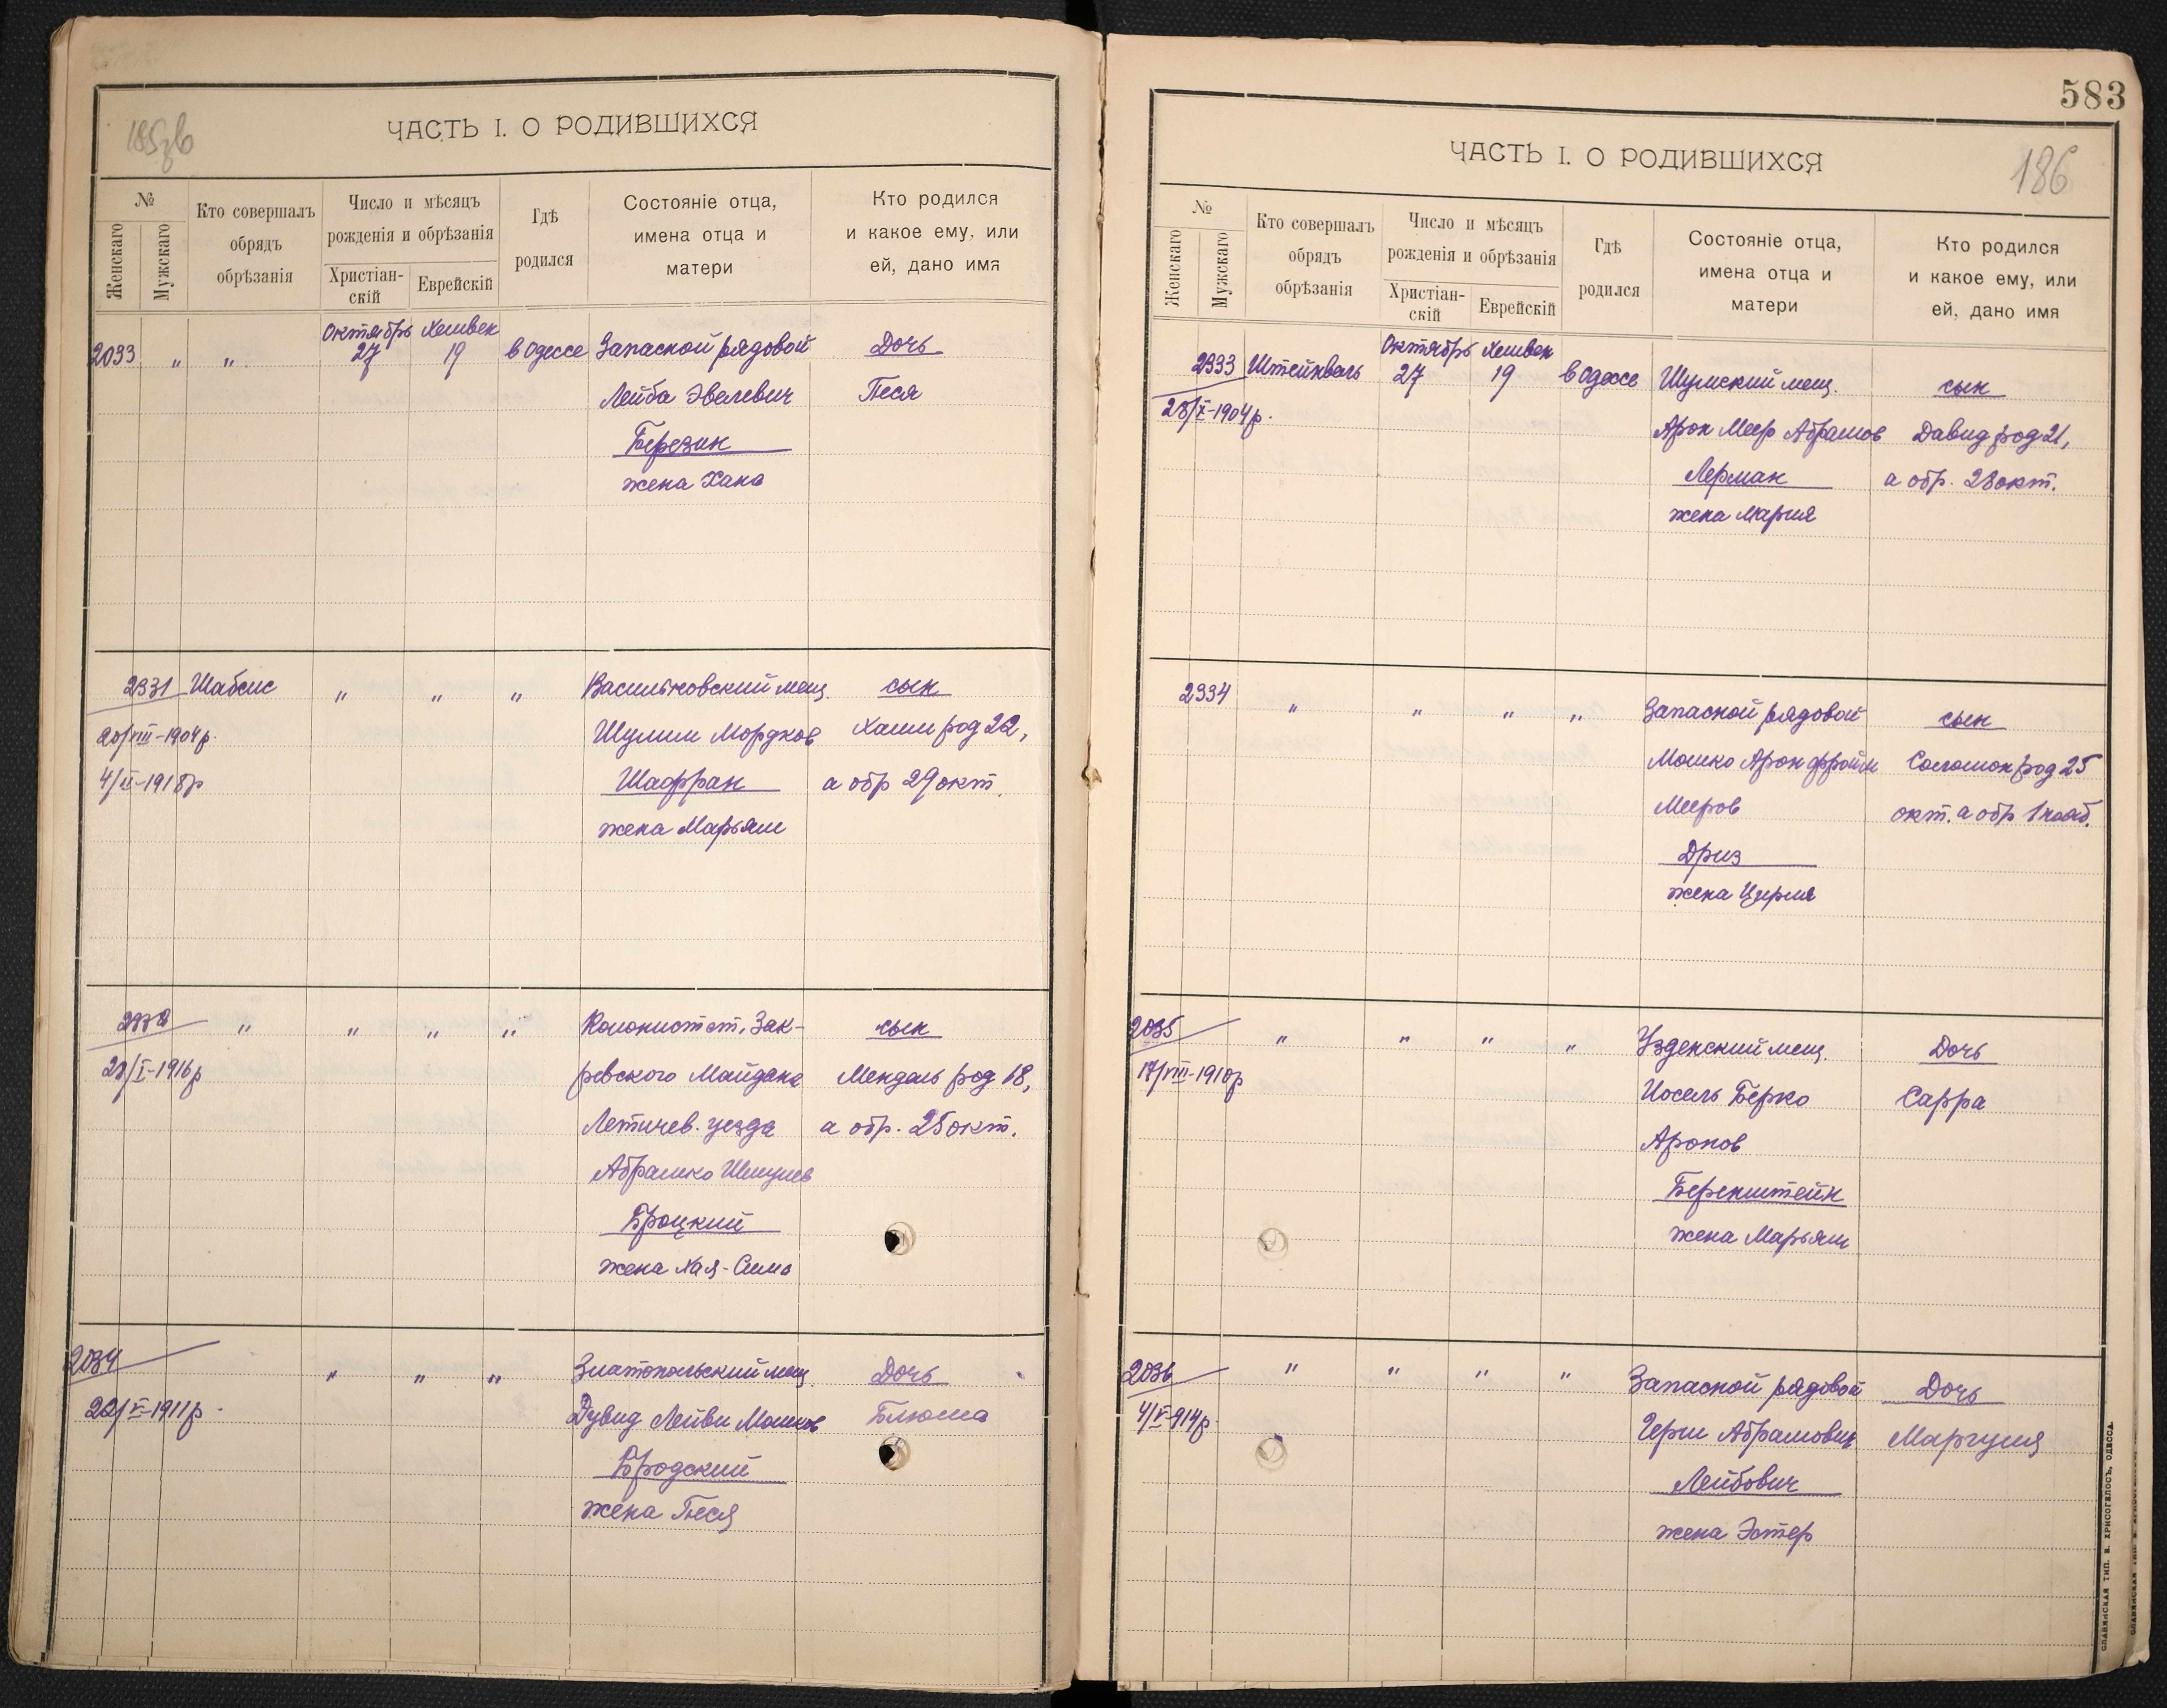 185 зв
ЧАСТЬ I. О РОДИВШИХСЯ
№
Женскаго
Мужскаго
Кто совершалъ
обрядъ
обрѣзанія
Число и мѣсяцъ
рожденія и обрѣзанія
Христіан-
скій
Еврейскій
Гдѣ
родился
Состояніе отца,
имена отца и
матери
Кто родился
и какое ему, или
ей, дано имя
Октябрь Хешвен
2033 " " 27 19 в Одессе Запасной рядовой Дочь
Лейба Эвелевич Песя
Березин
жена Хана
2331 Шабсис " " " Васильковский мещ. сын
20/VIII-1904р. Шулим Мордков Хаим род 22,
4/II-1918р Шафран а обр 29 окт.
жена Марьям
2332 " " " " Колонист ст. Зак- сын
28/I-1916р ревского Майдана Мендель род 18,
Летичев. уезда а обр. 25 окт.
Абрамко
Броцкий
жена Хая-Сима
2034 " " " Златопольский мещ. Дочь
22/V-1911р. Дувид Лейви Мошков Блюма
Бродский
жена Песя
583
ЧАСТЬ I. О РОДИВШИХСЯ
186
№
Женскаго
Мужскаго
Кто совершалъ
обрядъ
обрѣзанія
Число и мѣсяцъ
рожденія и обрѣзанія
Христіан-
скій
Еврейскій
Гдѣ
родился
Состояніе отца,
имена отца и
матери
Кто родился
и какое ему, или
ей, дано имя
Октябрь Хешвен
2333 Штейнваль 27 19 в Одессе Шумский мещ. сын
28/X-1904р. Арон Меер Абрамов Давид род 21,
Лерман а обр. 28 окт.
жена Мария
2334 " " " " Запасной рядовой сын
Мошко Арон Фроим Соломон род 25
Мееров окт. а обр 1 нояб.
Дриз
жена Цирля
2035 " " " " Узденский мещ. Дочь
17/VIII-1910р Иосель Берко Сарра
Аронов
Беренштейн
жена Марьям
2036 " " " " Запасной рядовой Дочь
4/V-914р. Герш Абрамович Маргуля
Лейбович
жена Эстер
СЛАВЯНСКАЯ ТИП. Н. ХРИСОГЕЛОСЪ, ОДЕССА.